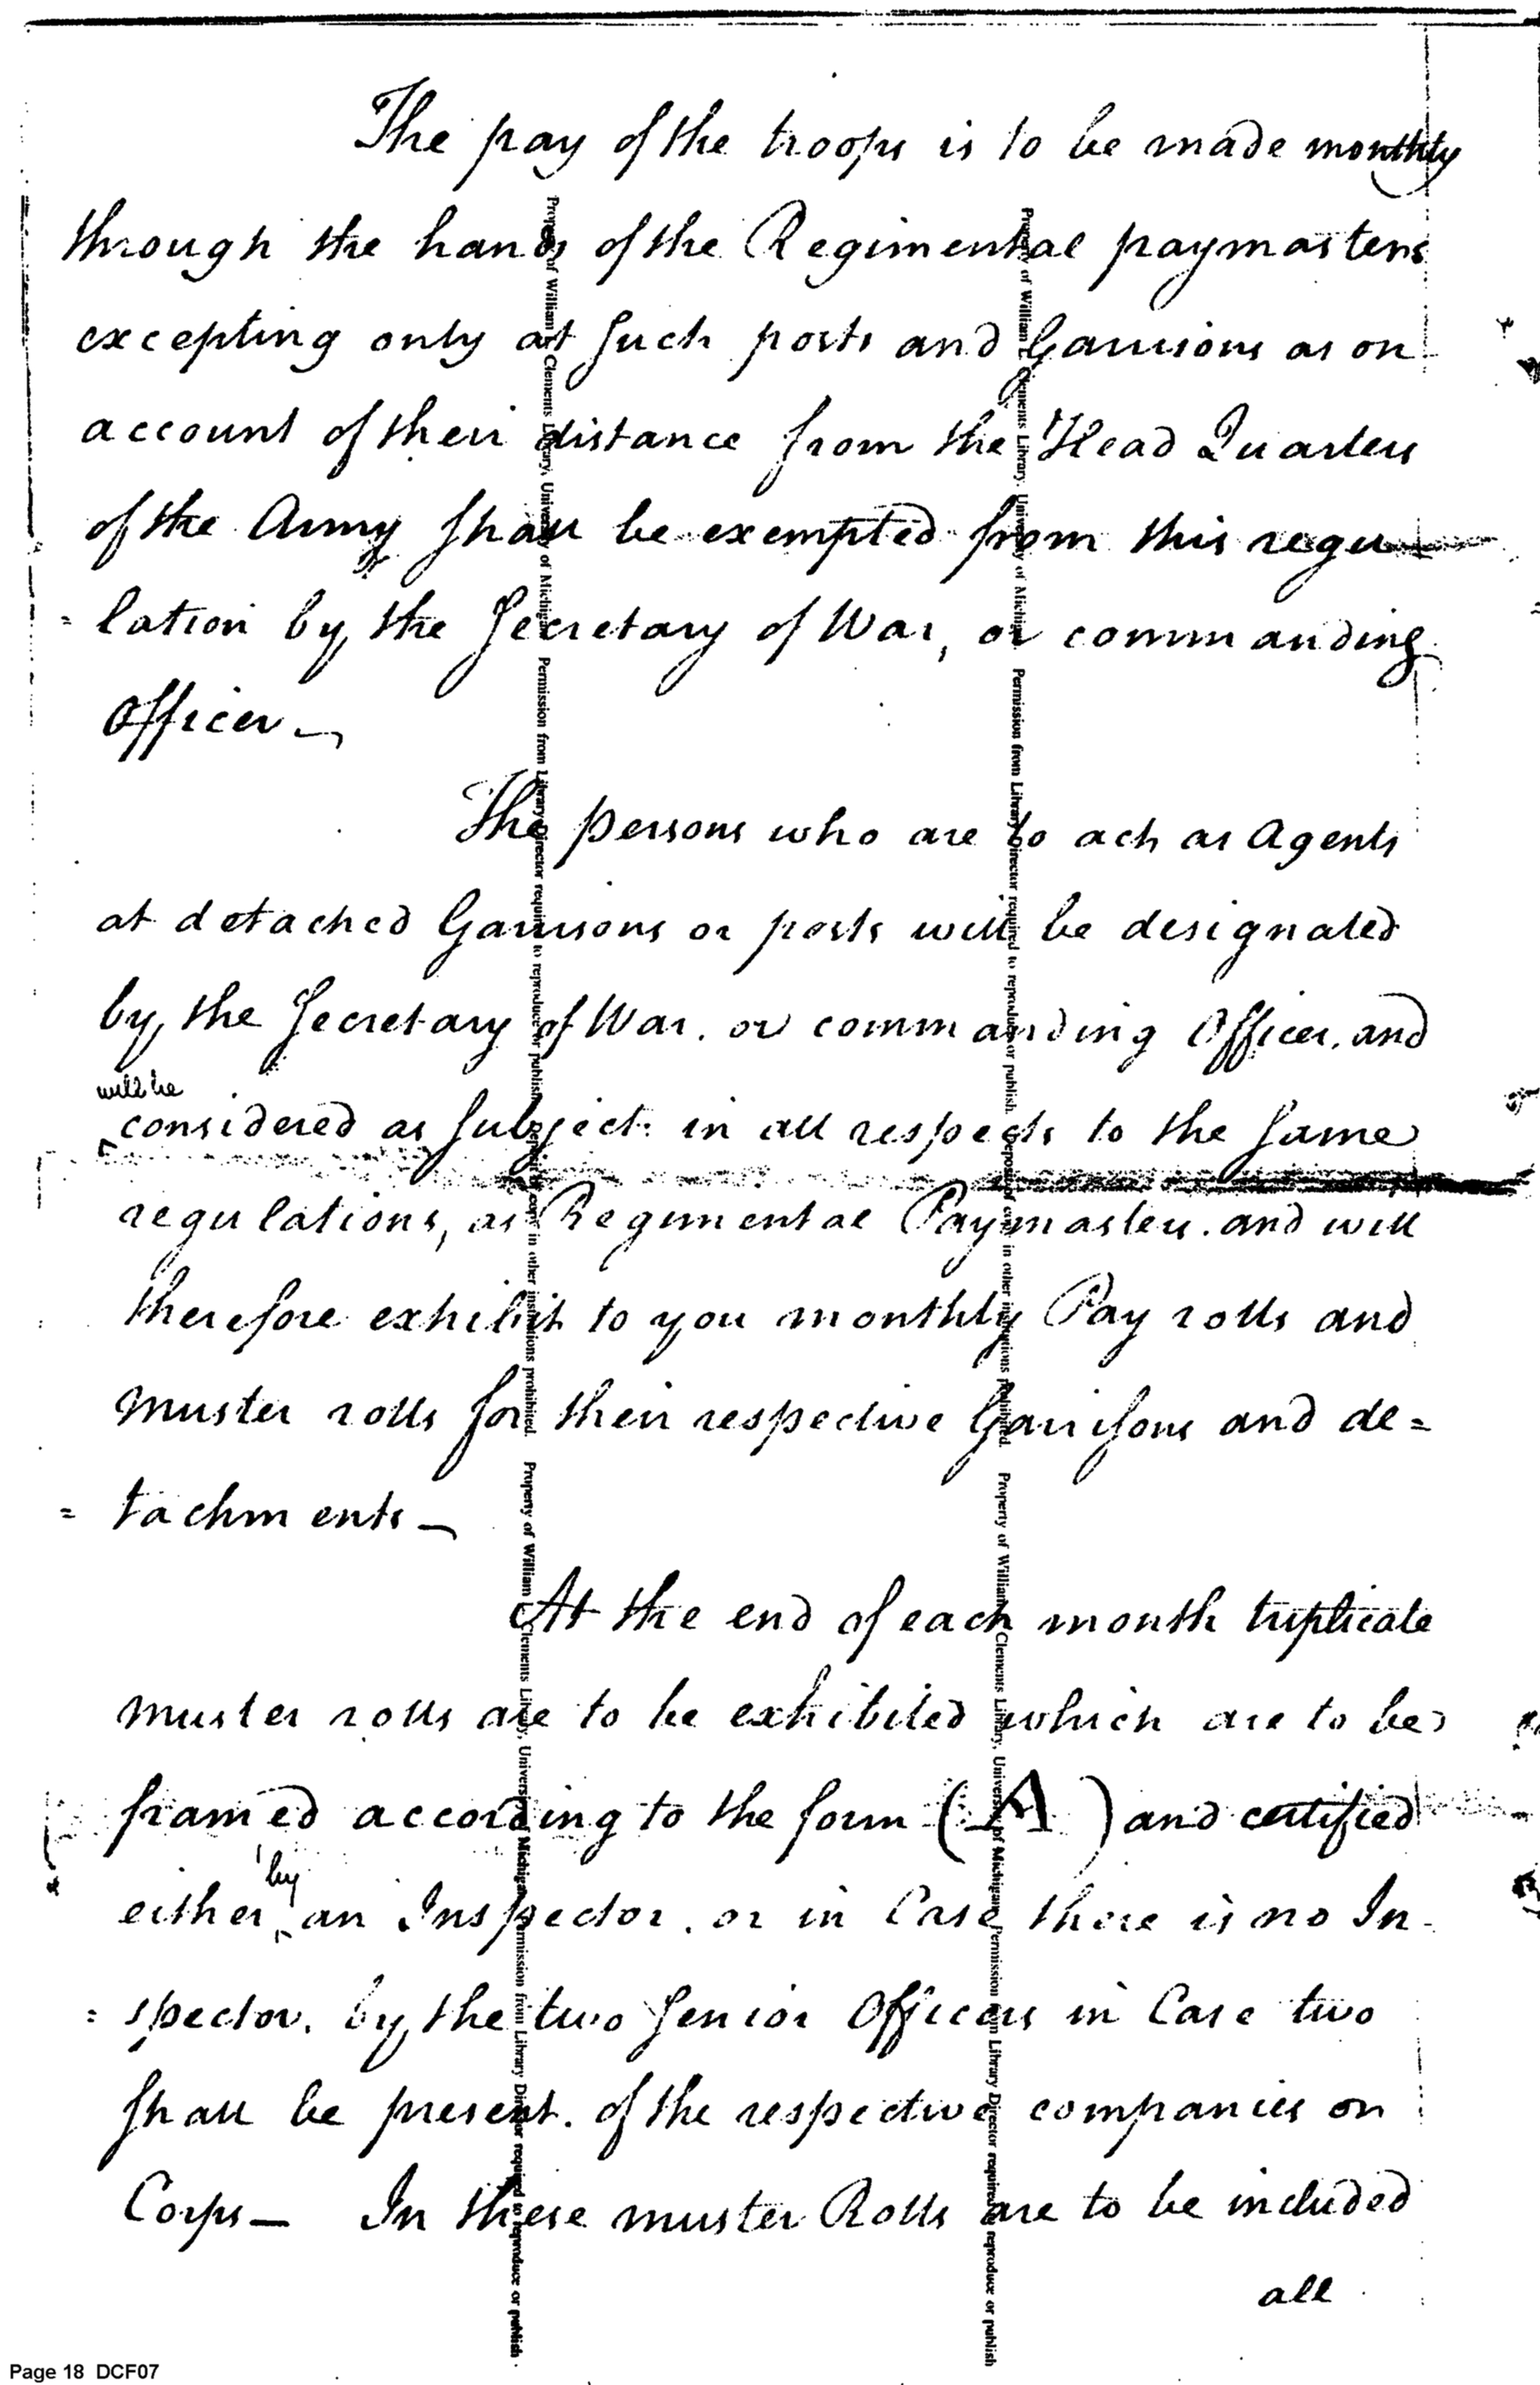 The pay of the troops is to be made monthly
through the hands of the Regimental paymasters
excepting only at such posts and Garrisons as on
account of their distance from the Head Quarters
of the Army shall be exempted from this regu
= lation by the Secretary of War, or commanding
Officer_
The persons who are to act as Agents
at detached Garrisons or posts will be designated
by the Secretary of War. or commanding Officer, and
will be
considered as subject in all respects to the same
regulations, as Regimental Paymasters. and will
therefore exhibit to you monthly Pay rolls and
muster rolls for their respective Garrisons and de=
= tachments_
At the end of each month triplicate
muster rolls are to be exhibited which are to be
framed according to the form (A) and certified
by
either an Inspector. or in Case there is no In-
= spector. by the two Senior Officers in Case two
shall be present. of the respective companies or
Corps_ In these muster Rolls are to be included
all
Property of William L Clements Library, University of Michigan. Permission from Library Director required to reproduce or publish. Deposit of copy in other institutions prohibited. Property of William L Clements Library, University of Michigan. Permission from Library Director required to reproduce or publish.
Property of William L Clements Library, University of Michigan. Permission from Library Director required to reproduce or publish. Deposit of copy in other institutions prohibited. Property of William L Clements Library, University of Michigan. Permission from Library Director required to reproduce or publish
Page 18 DCF07